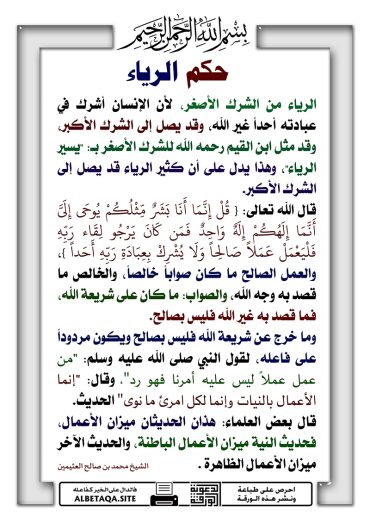 بسم الله الرحمن الرحيم
حكم الرياء
الرياء من الشرك الأصغر، لأن الإنسان أشرك في
عبادته أحداً غير الله، وقد يصل إلى الشرك الأكبر،
وقد مثل ابن القيم رحمه الله للشرك الأصغر بـ: "يسير
الرياء"، وهذا يدل على أن كثير الرياء قد يصل إلى
الشرك الأكبر.
قال الله تعالى: { قُلْ إِنَّمَا أَنَا بَشَرٌ مِّثْلُكُمْ يُوحَى إِلَيَّ
أَنَّمَا إِلَهُكُمْ إِلَهٌ وَاحِدٌ فَمَن كَانَ يَرْجُو لِقَاء رَبِّهِ
فَلْيَعْمَلْ عَمَلاً صَالِحاً وَلَا يُشْرِكْ بِعِبَادَةِ رَبِّهِ أَحَداً }،
والعمل الصالح ما كان صواباً خالصاً، والخالص ما
قصد به وجه الله، والصواب: ما كان على شريعة الله،
فما قصد به غير الله فليس بصالح.
وما خرج عن شريعة الله فليس بصالح ويكون مردوداً
على فاعله، لقول النبي صلى الله عليه وسلم: "من
عمل عملاً ليس عليه أمرنا فهو رد"، وقال: "إنما
الأعمال بالنيات وإنما لكل امرئ ما نوى" الحديث.
قال بعض العلماء: هذان الحديثان ميزان الأعمال،
فحديث النية ميزان الأعمال الباطنة، والحديث الآخر
ميزان الأعمال الظاهرة .
الشيخ محمد بن صالح العثيمين
فالدال على الخير كفاعله
ALBETAQA.SITE
احرص على طباعة
ونشر هذه الورقة